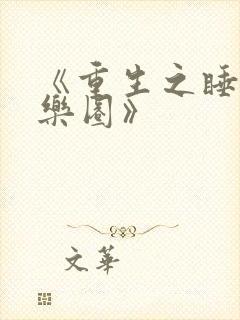 《重生之睡
樂園》
文華